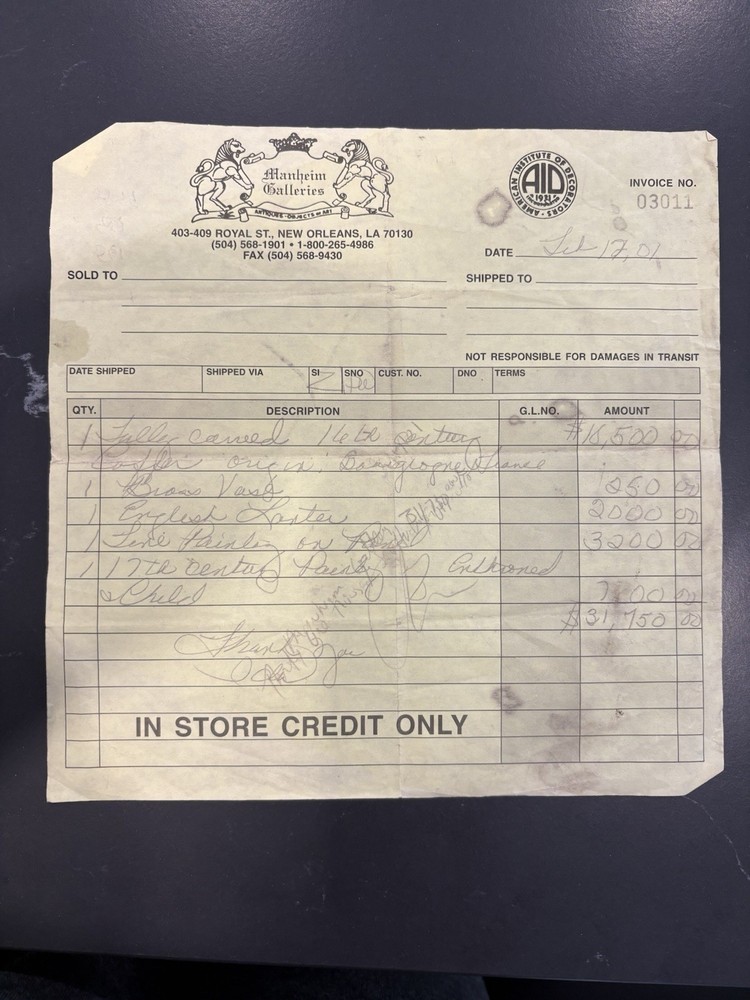 Manheim
Galleries
ANTIQUES - OBJECTS OF ART
403-409 ROYAL ST., NEW ORLEANS, LA 70130
(504) 568-1901 • 1-800-265-4986
FAX (504) 568-9430
AMERICAN INSTITUTE OF DECORATORS
AID
1931
INVOICE NO.
03011
DATE Feb 17, 01
SOLD TO
SHIPPED TO
NOT RESPONSIBLE FOR DAMAGES IN TRANSIT
DATE SHIPPED SHIPPED VIA SI SNO CUST. NO. DNO TERMS
QTY. DESCRIPTION G.L.NO. AMOUNT
1 Fully carved 16th Century 00
origin: France
1 Brass Vase 1250 00
1 English 2000 00
1 Fine Painting on 3200 00
1 17th Century Enthroned
& Child 00
$31,750 00
Thank you
IN STORE CREDIT ONLY